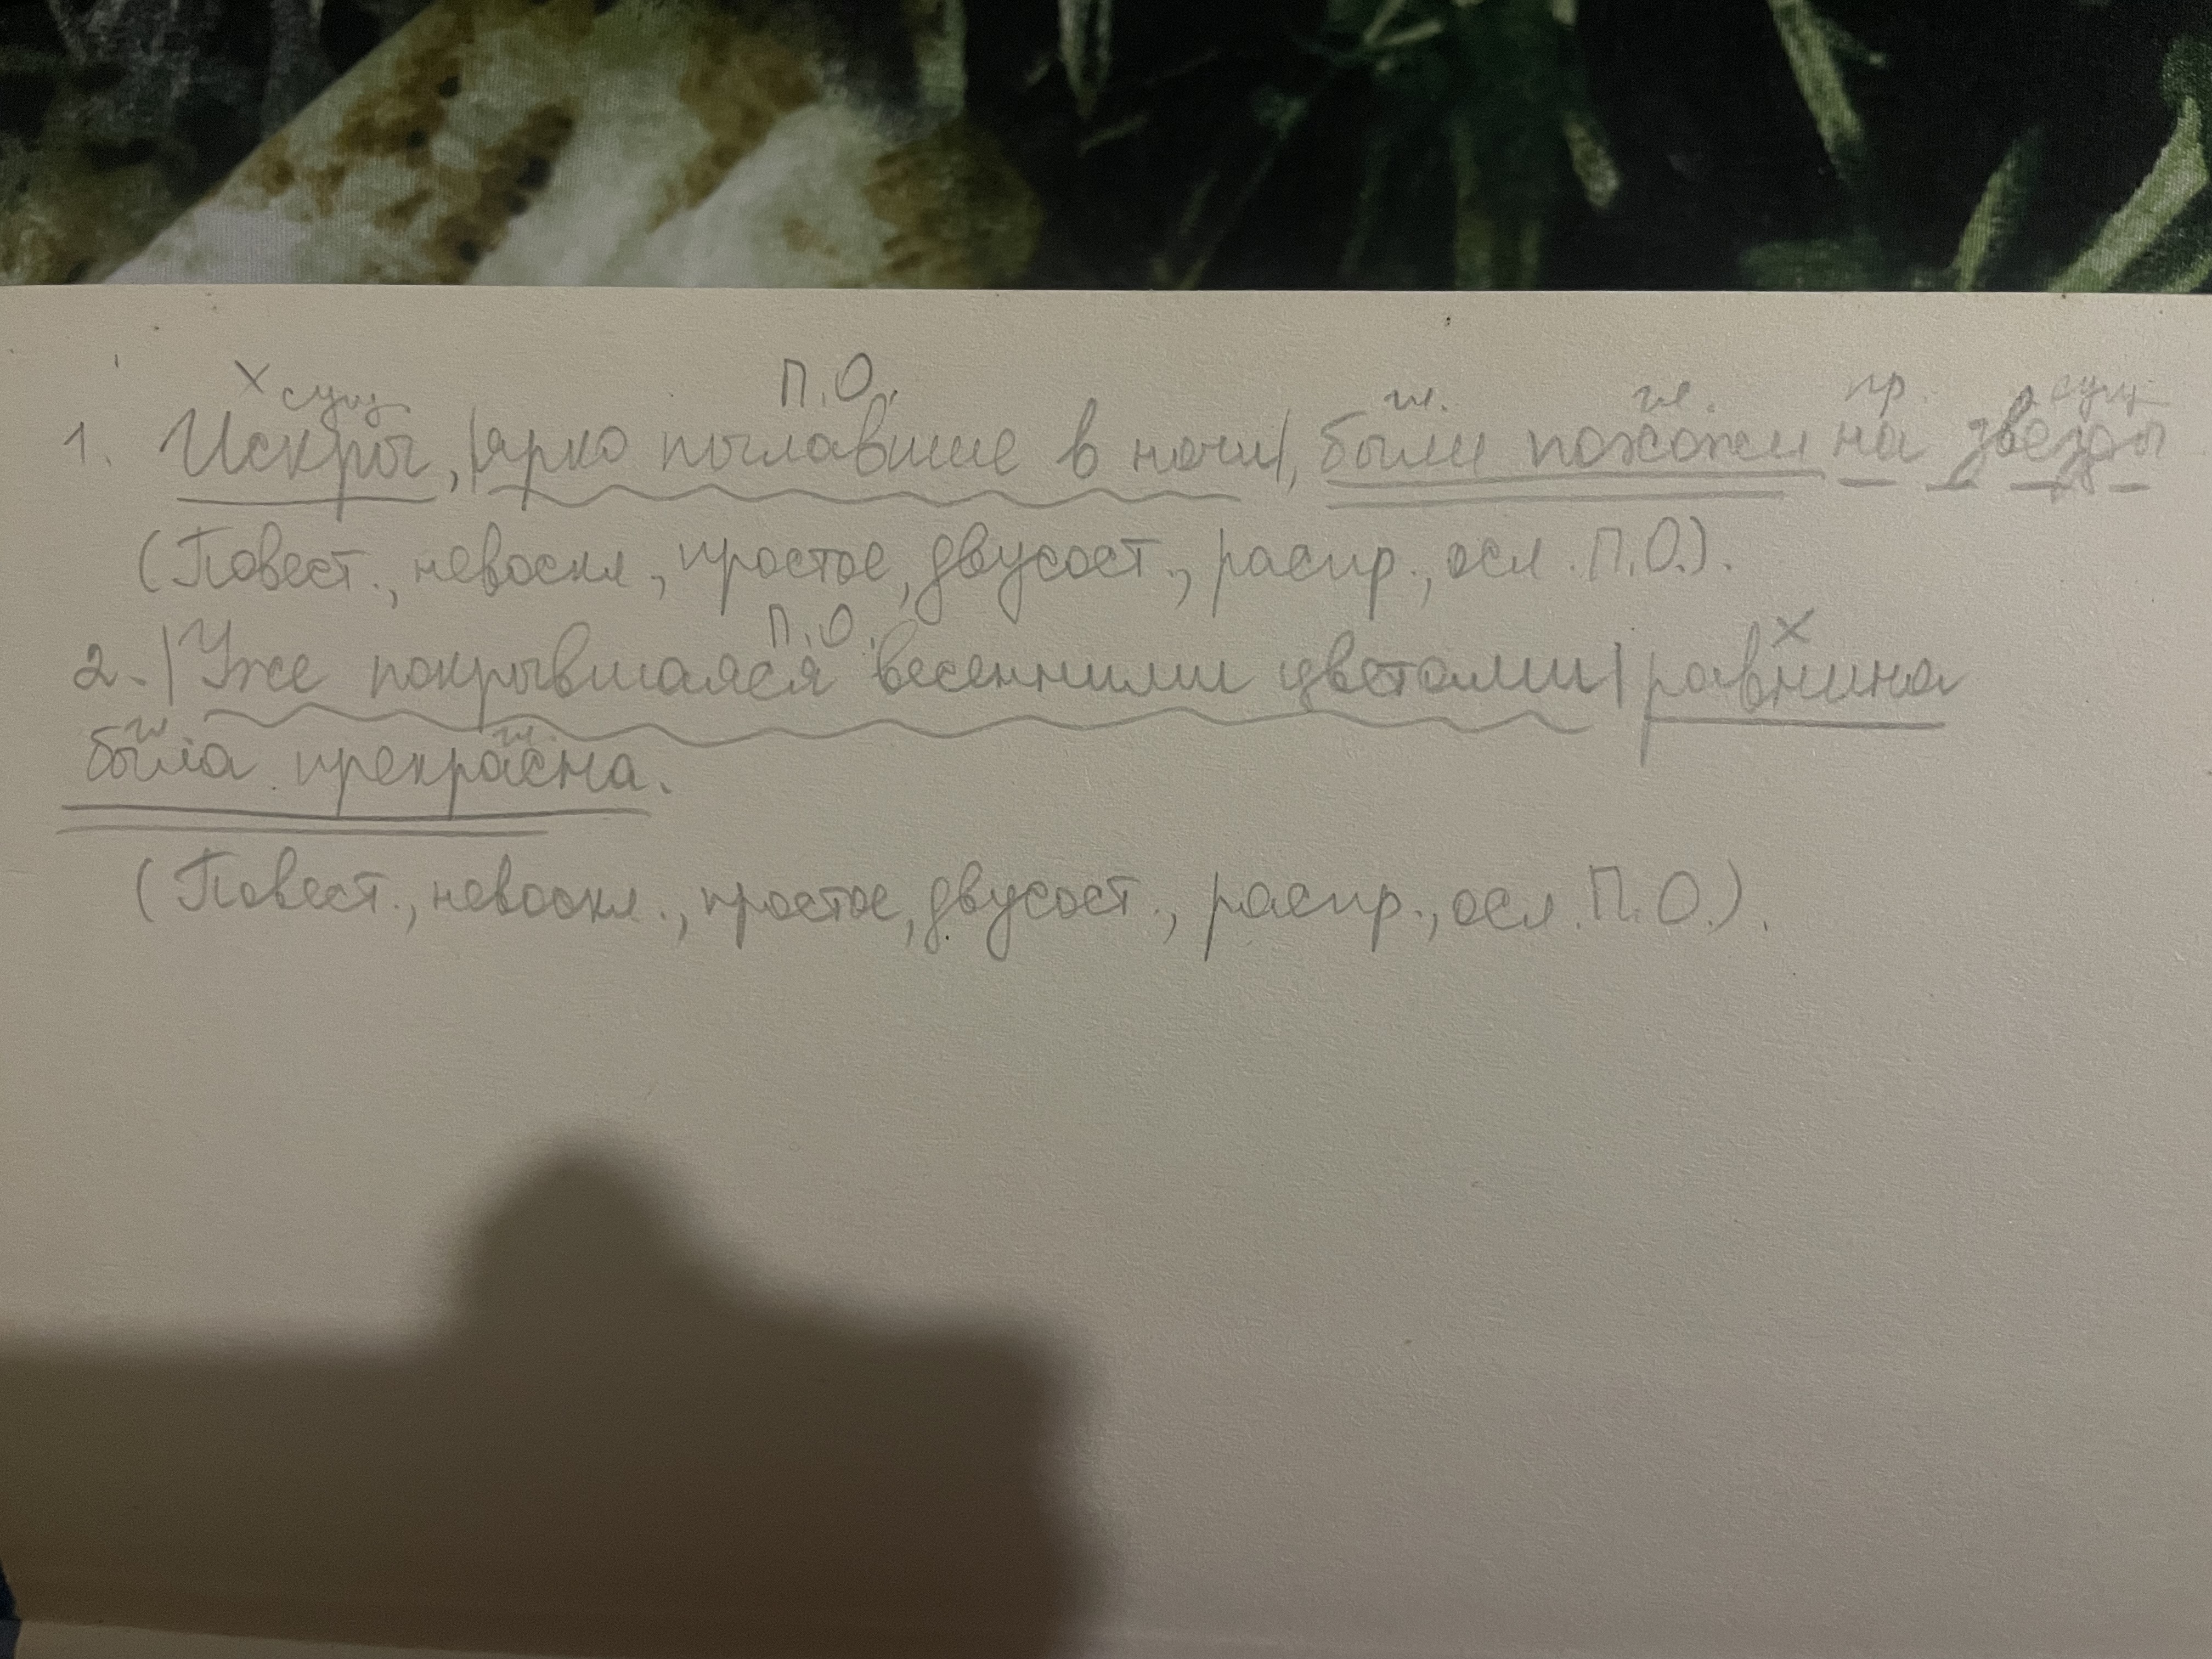 х сущ. П.О. гл. гл. пр. сущ.
1. Искры, |ярко пылавшие в ночи|, были похожи на звёзды
(Повест., невоскл., простое, двусост., распр., осл. П.О.).
П.О. х
2. |Уже покрывшаяся весенними цветами| равнина
гл. гл.
была прекрасна.
(Повест., невоскл., простое, двусост., распр., осл. П.О.).